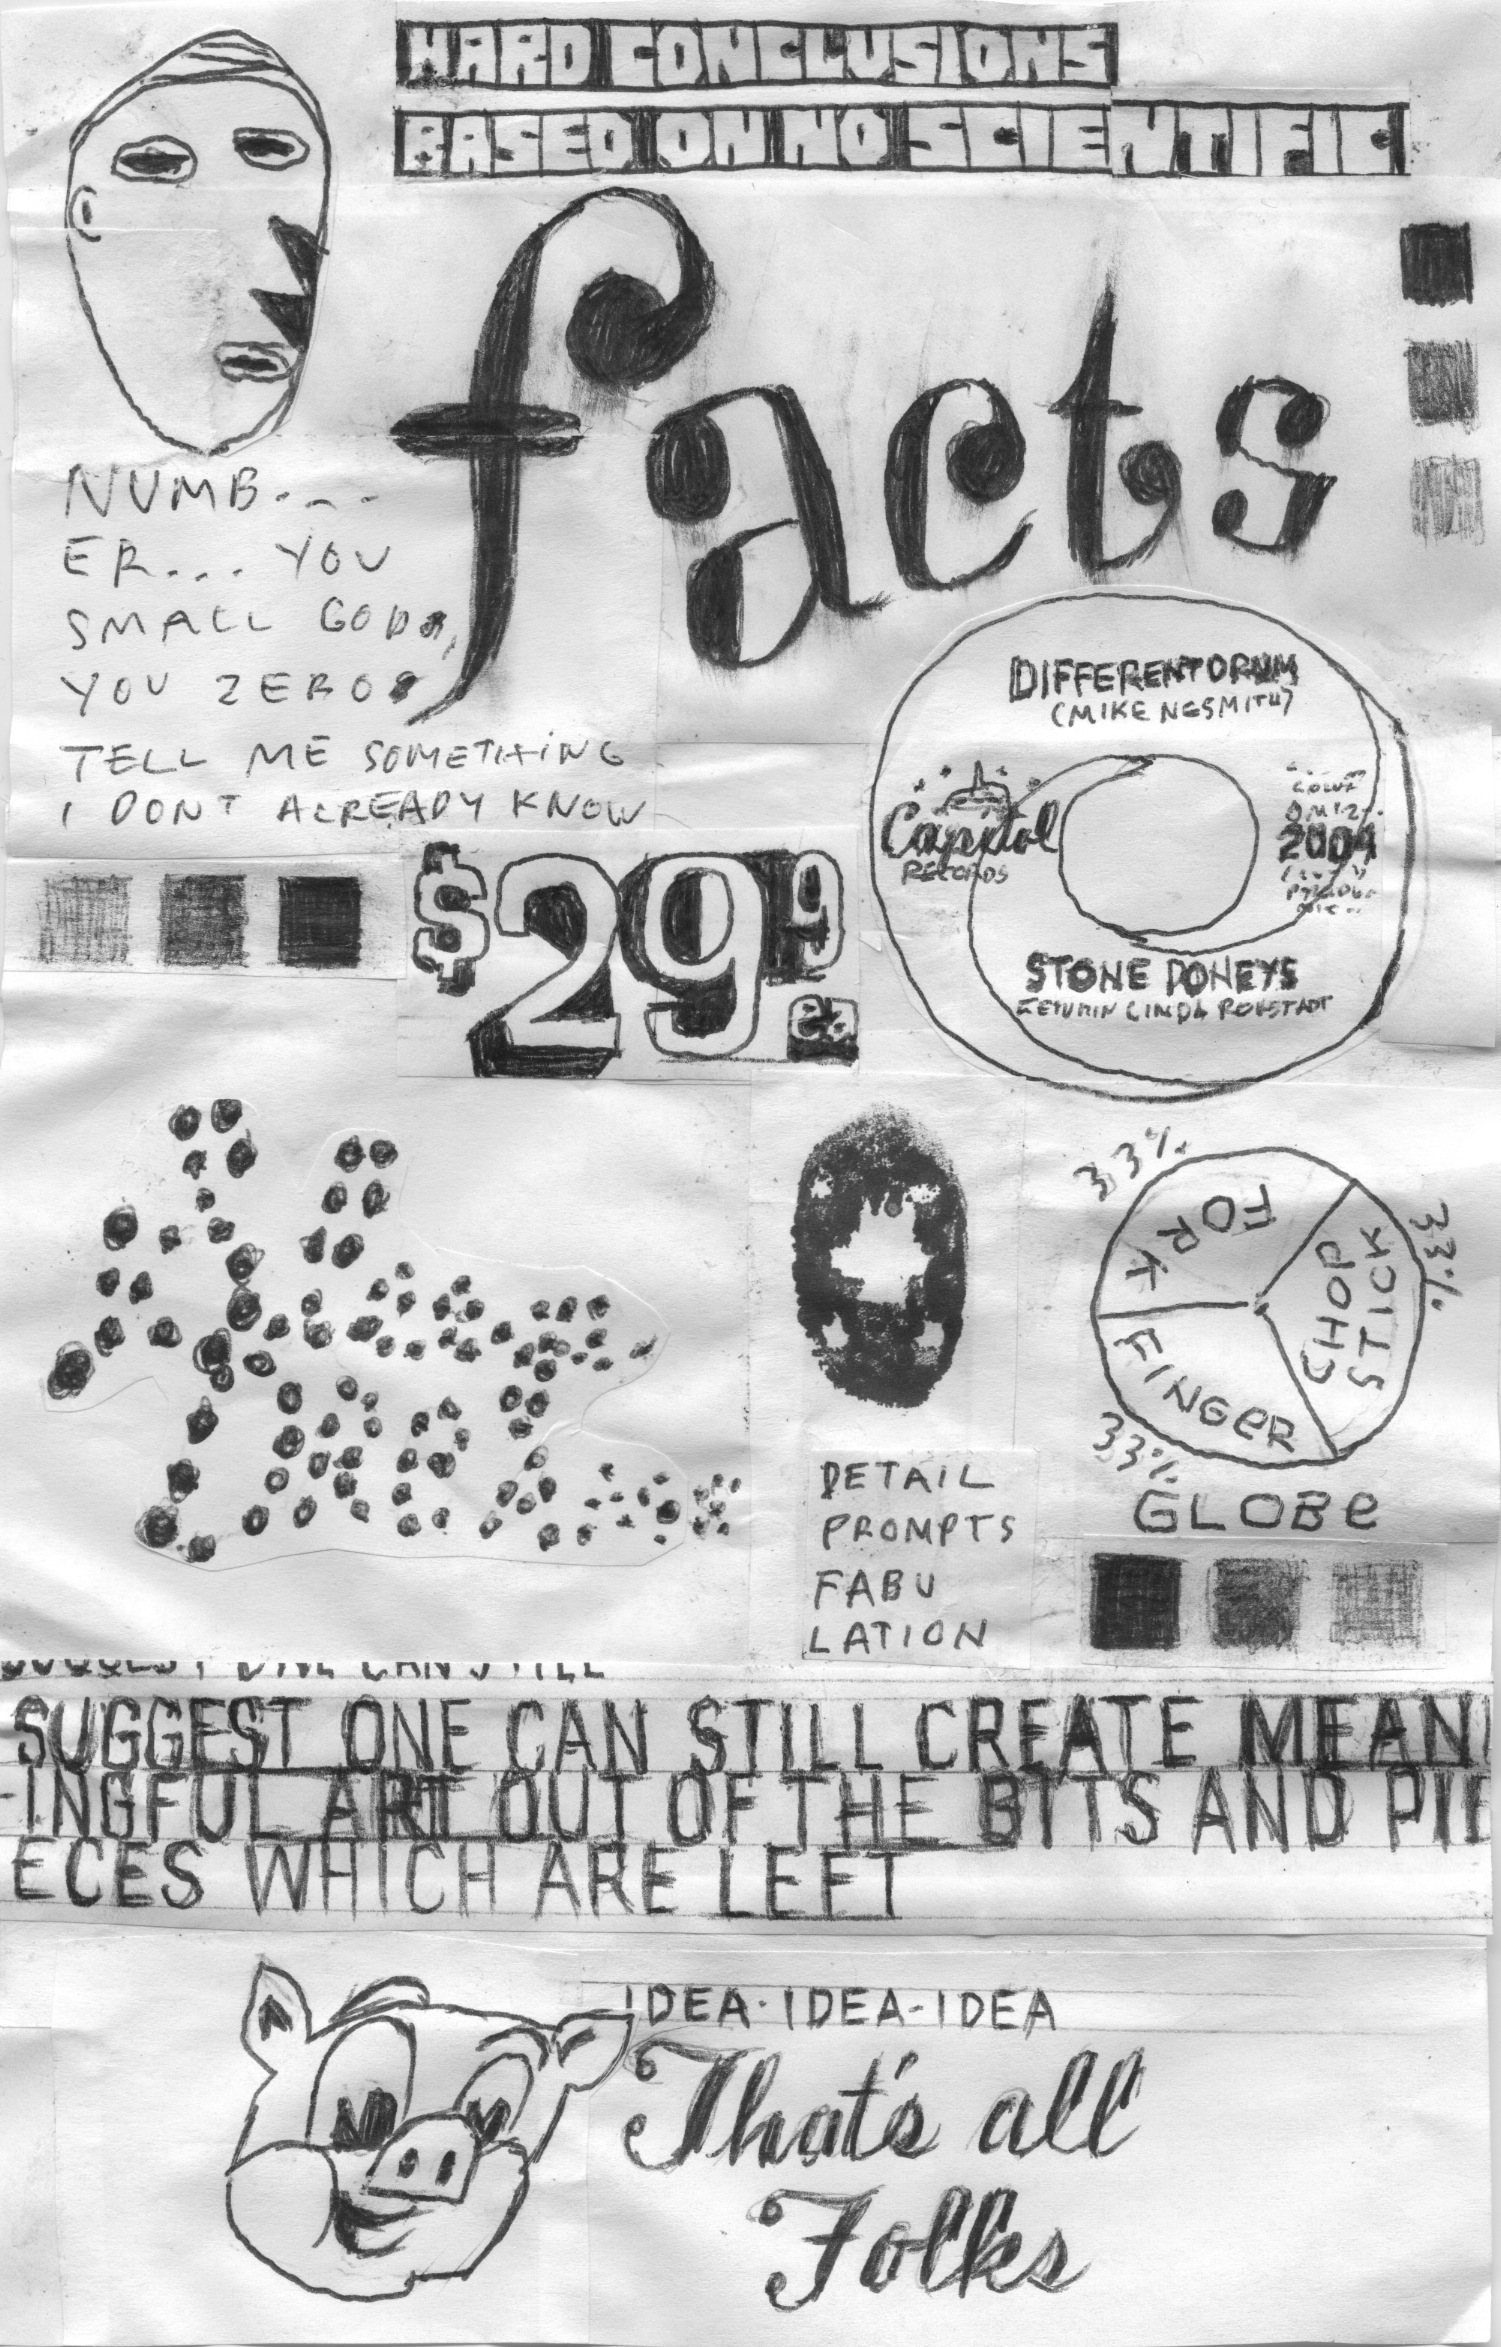 HARD CONCLUSIONS
BASED ON NO SCIENTIFIC
facts
NUMB...
ER... YOU
SMALL GODS,
YOU ZEROS
TELL ME SOMETHING
I DONT ALREADY KNOW
DIFFERENTDRUM
(MIKE NESMITH)
Capitol
RECORDS
2009
STONE PONEYS
LINDA RONSTADT
$29.99
ea
33%
FORK
33%
CHOP
STICK
FINGER
33%
GLOBe
DETAIL
PROMPTS
FABU
LATION
SUGGEST ONE CAN STILL
SUGGEST ONE CAN STILL CREATE MEAN
-INGFUL ART OUT OF THE BITS AND PIE
ECES WHICH ARE LEFT
IDEA-IDEA-IDEA
That's all
Folks